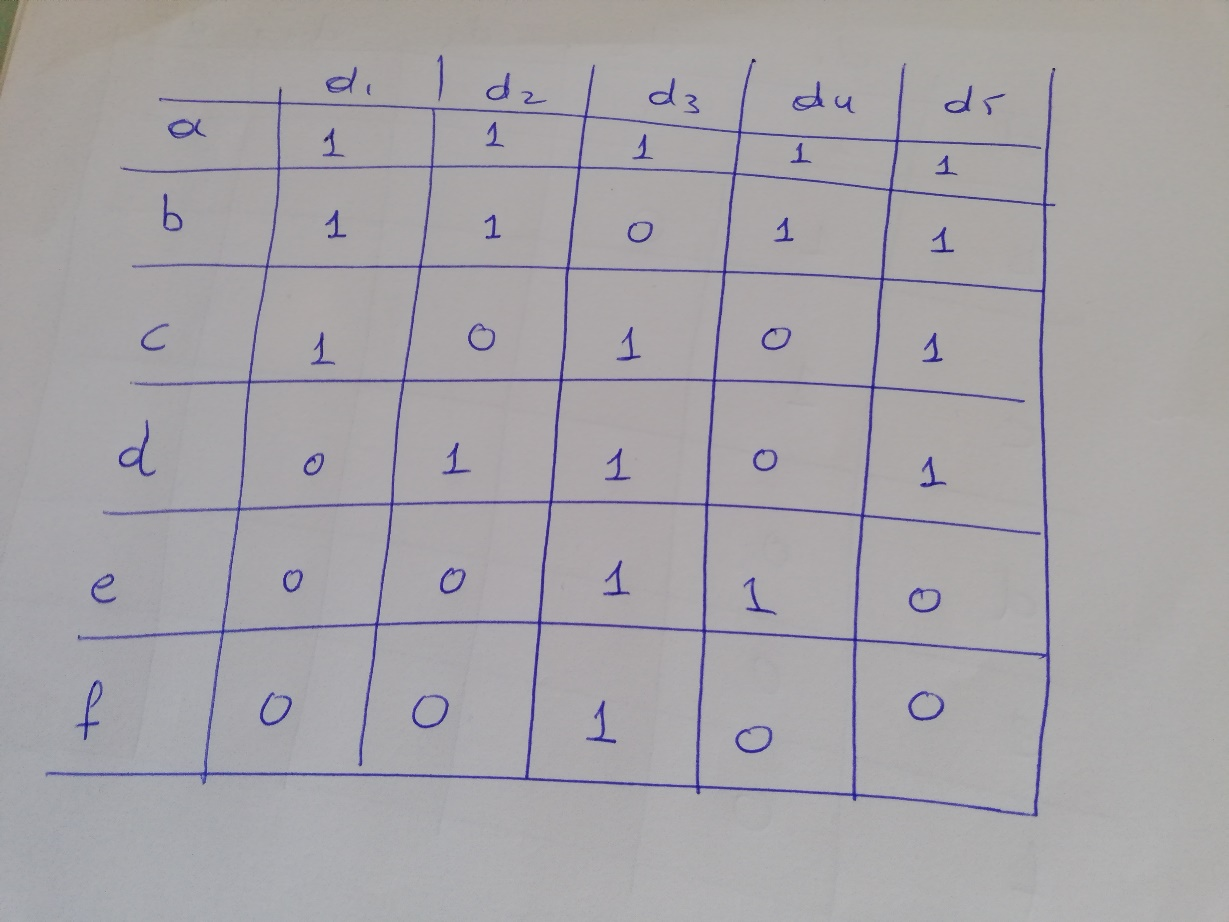 d1 d2 d3 d4 d5
a 1 1 1 1 1
b 1 1 0 1 1
c 1 0 1 0 1
d 0 1 1 0 1
e 0 0 1 1 0
f 0 0 1 0 0